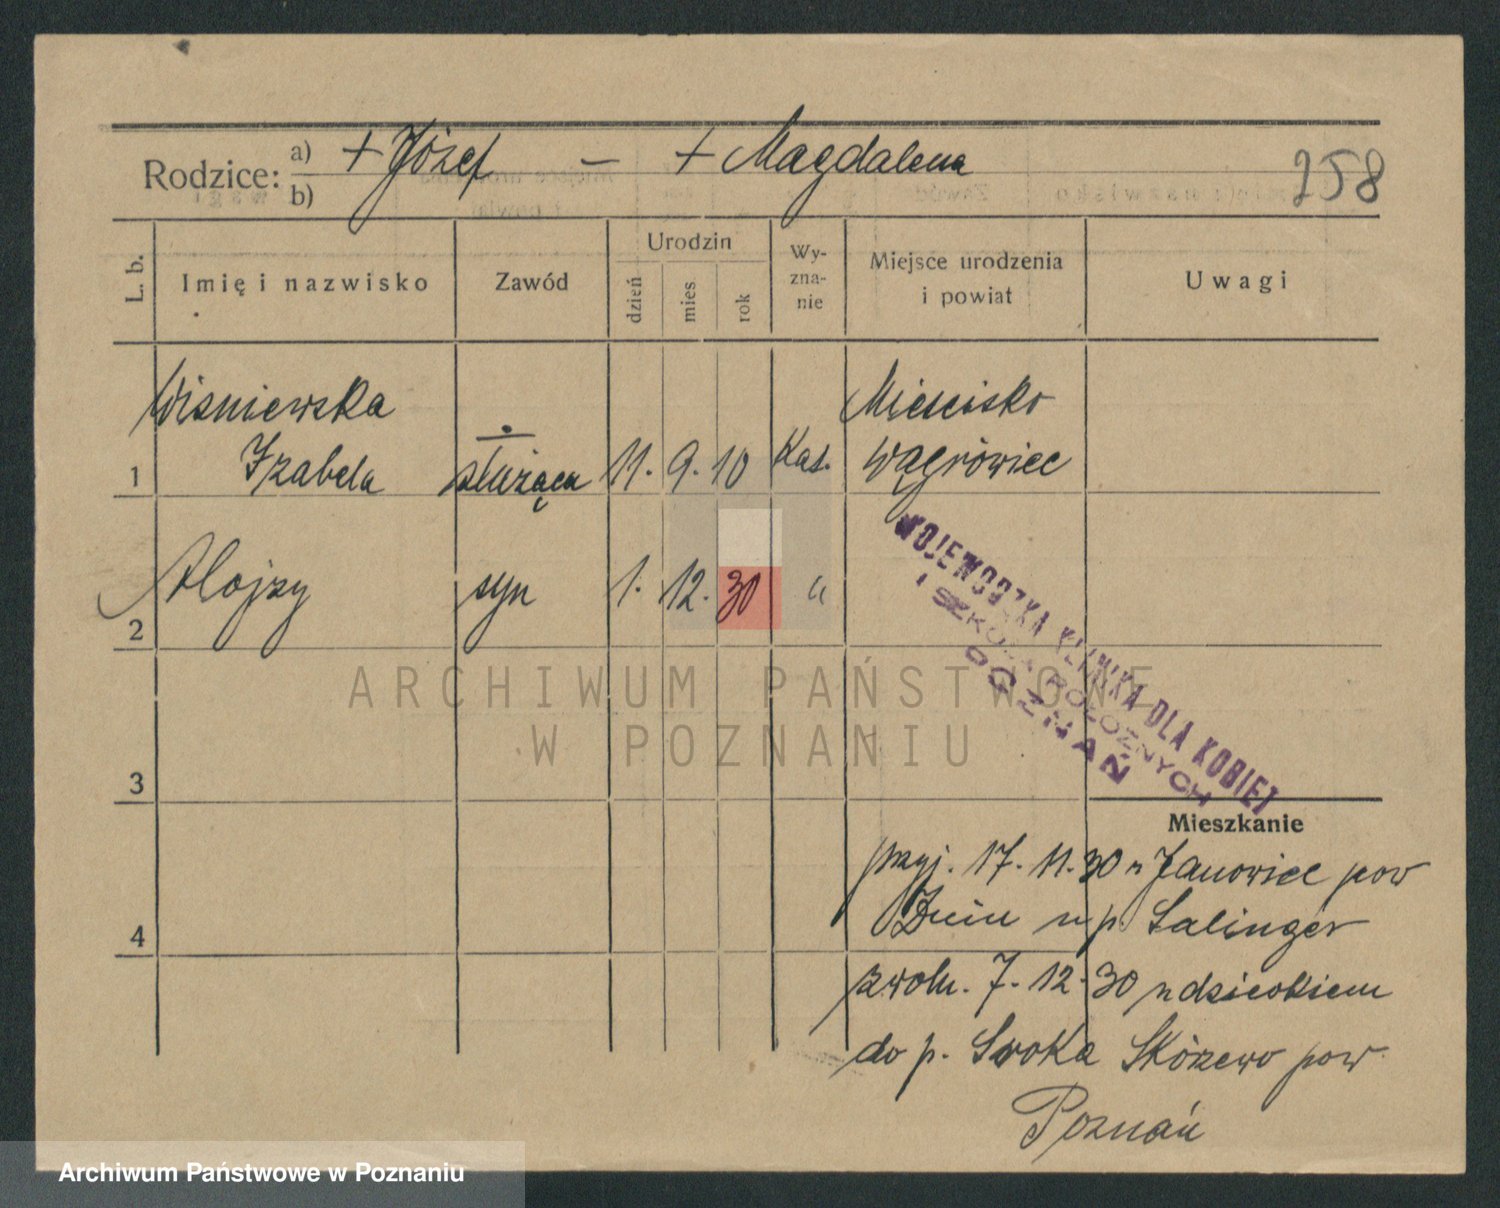 Rodzice: a) + Józef — + Magdalena
b)
258
L. b. Imię i nazwisko Zawód Urodzin dzień mies rok Wy-zna-nie Miejsce urodzenia i powiat Uwagi
Wiśniewska Mieścisko
1 Izabela służąca 11. 9. 10 Kat. Wągrówiec
2 Alojzy syn 1. 12. 30 "
WOJEWÓDZKA KLINIKA DLA KOBIET
I SZKOŁA POŁOŻNYCH
POZNAŃ
ARCHIWUM PAŃSTWOWE
W POZNANIU
3
Mieszkanie
4
przyj. 17. 11. 30 z Janowiec pow
Żnin u p. Salinger
zwoln. 7. 12. 30 z dzieckiem
do p. Sroka Skórzewo pow.
Poznań
Archiwum Państwowe w Poznaniu